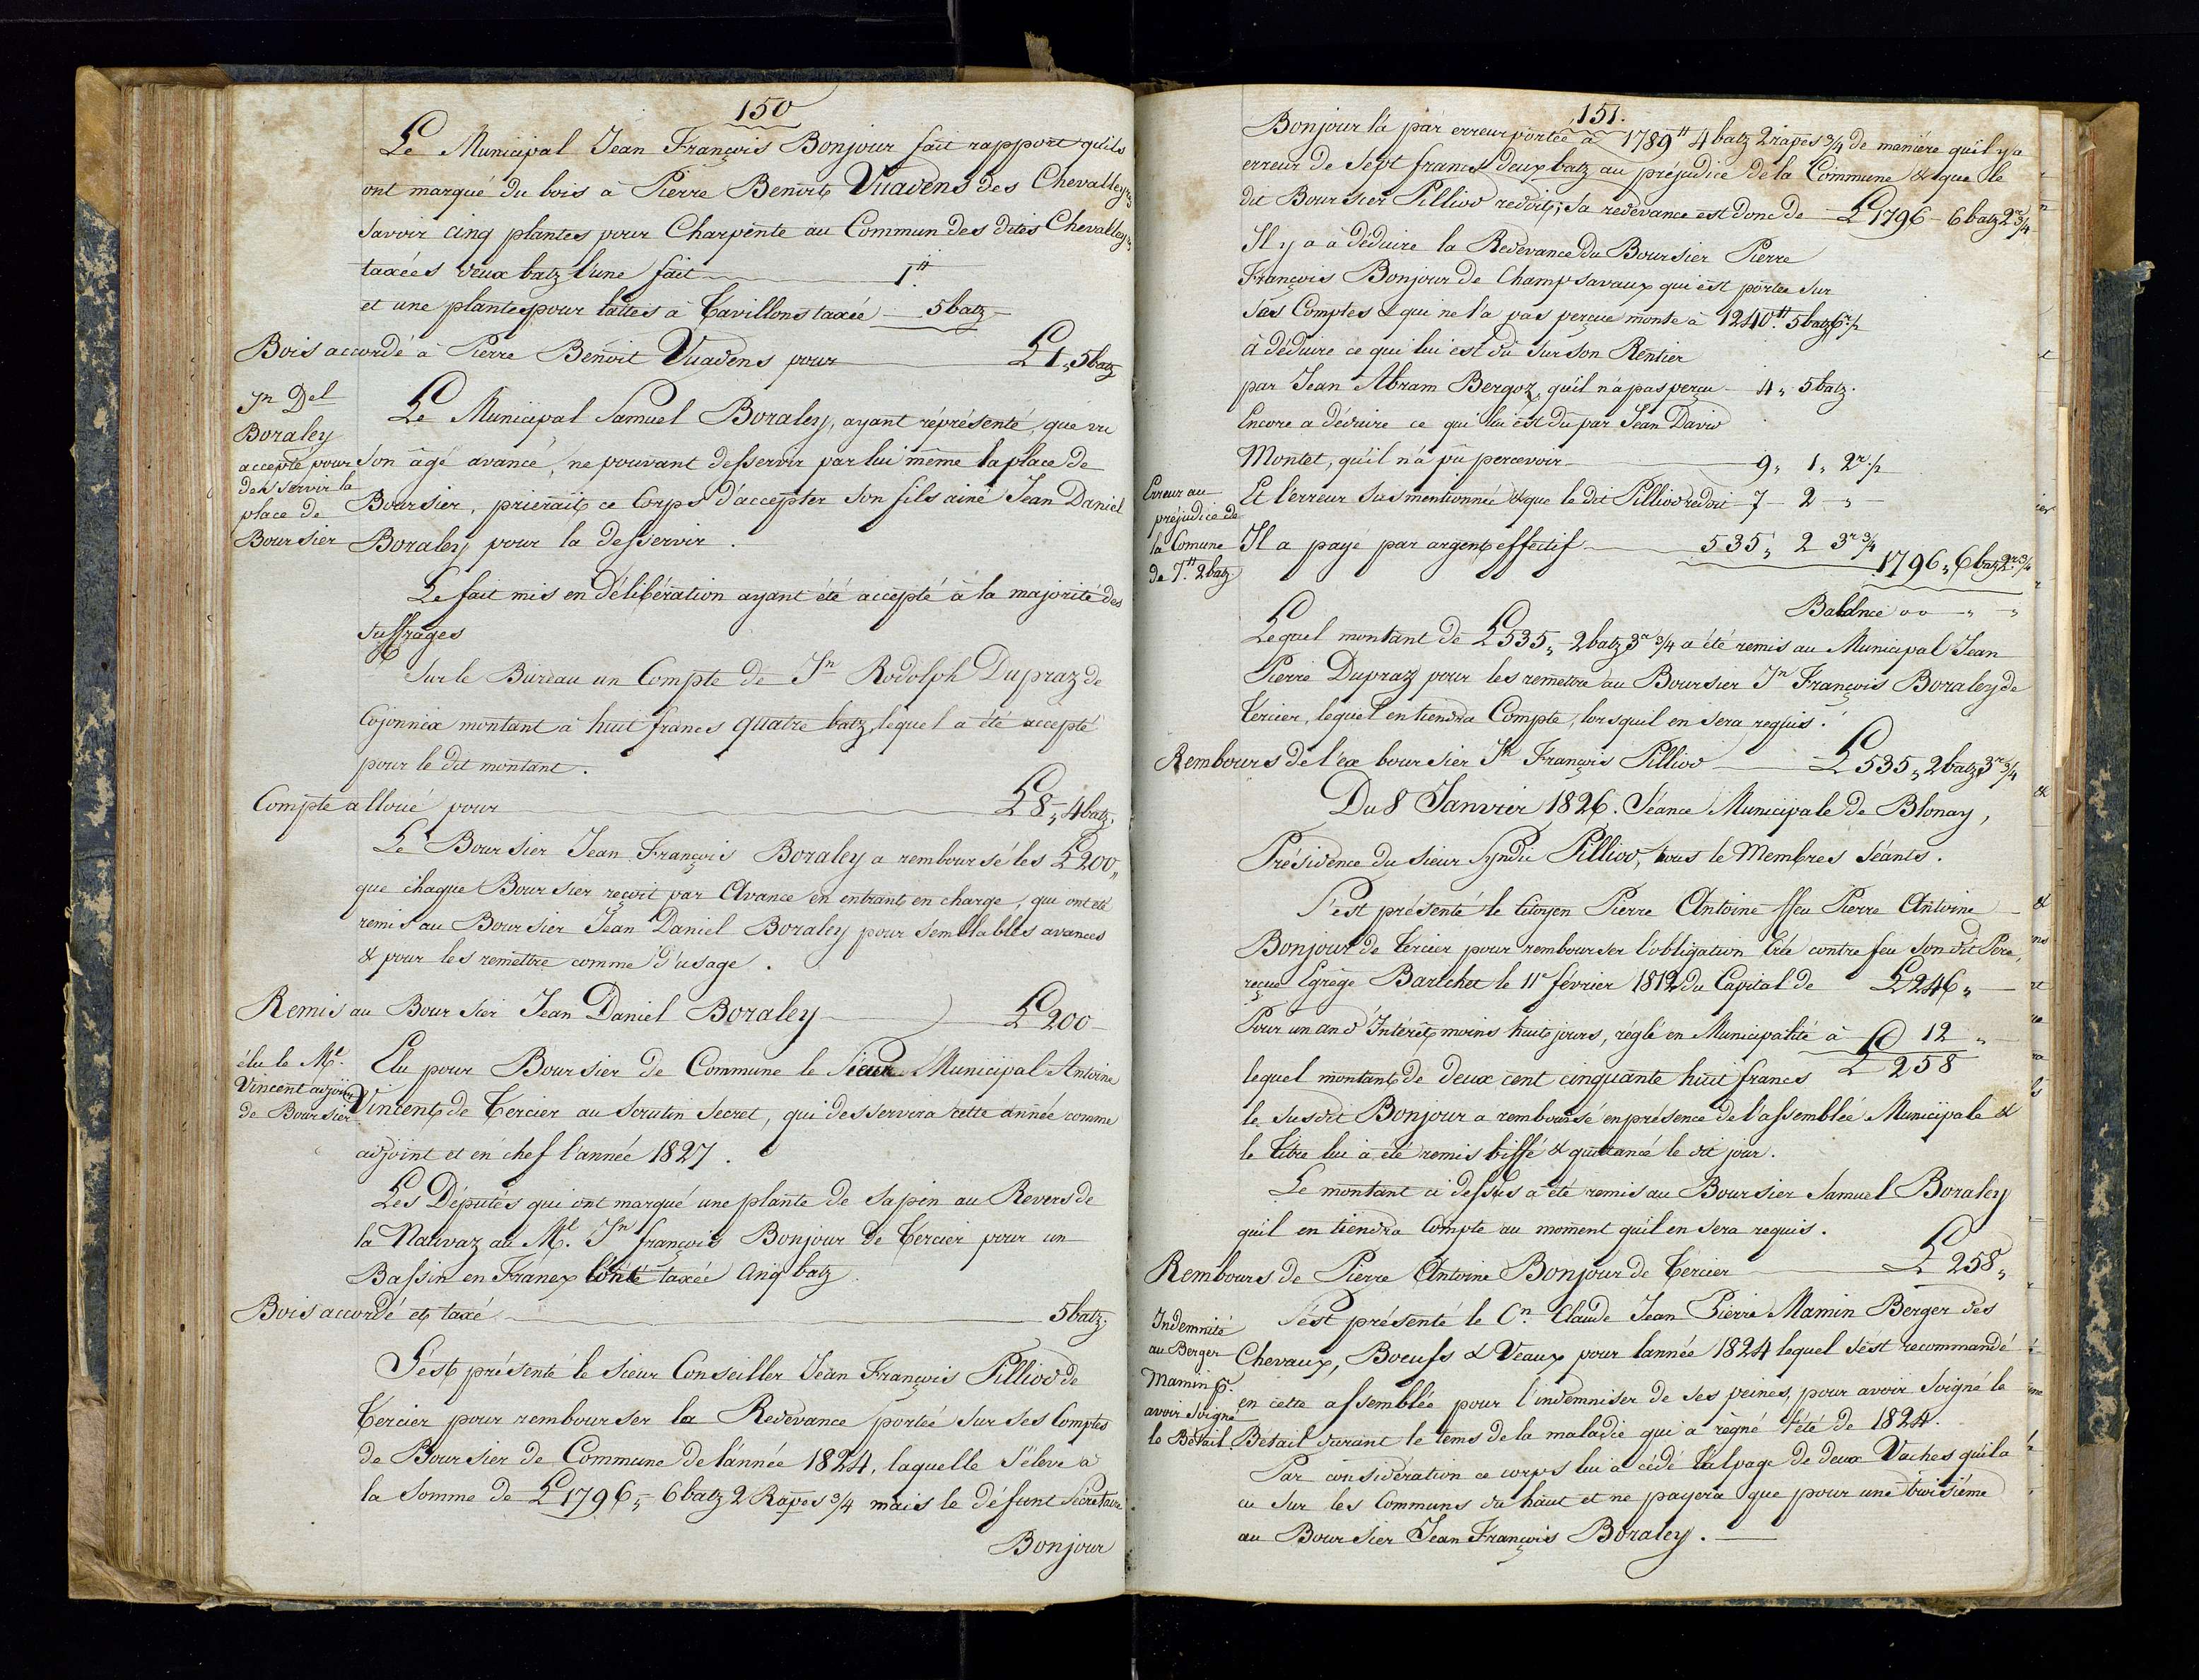 150
Le Municipal Jean François Bonjour fait rapport qu'ils
ont marqué du bois à Pierre Benoit Vuadens des Chevalleyres
savoir cinq plantes pour Charpente au Commun des dites Chevalleyres
taxées deux batz l'une fait 1.#
et une plante pour lattes à Tavillons taxée 5 batz
Bois accordé à Pierre Benoit Vuadens pour L 1,, 5 batz
Jn Del
Boraley
accepté pour
desservir la
place de
Boursier
Le Municipal Samuel Boraley, ayant réprésenté, que vu
son âgé avancé, ne pouvant desservir par lui même la place de
Boursier, prierait ce Corps d'accepter son fils ainé Jean Daniel
Boraley pour la desservir.
Le fait mis en Délibération ayant été accepté à la majorité des
suffrages
Sur le Bureau un Compte de Jn Rodolph Dupraz de
Cojonnex montant à huit francs quatre batz, lequel a été accepté
pour le dit montant.
Compte alloué pour L 8,, 4 batz.
Le Boursier Jean François Boraley a remboursé les L 200,,
que chaque Boursier reçoit par Avance en entrant en charge, qui ont été
remis au Boursier Jean Daniel Boraley pour semblables avances
& pour les remettre comme d'usage.
Remis au Boursier Jean Daniel Boraley L 200
élu le Ml.
Vincent adjoint
de Boursier
Elu pour Boursier de Commune le Sieur Municipal Antoine
Vincent de Tercier au scrutin secret, qui desservira cette année comme
adjoint et en chef l'année 1827.
Les Députés qui ont marqué une plante de sapin au Revers de
la Nauvaz au Ml. Jn françois Bonjour de Tercier pour un
Bassin en Franex l'ont taxée cinq batz.
Bois accordé et taxé 5 batz.
S'est présenté le sieur Conseiller Jean François Pilliod de
Tercier pour rembourser la Redevance portée sur ses Comptes
de Boursier de Commune de l'année 1824, laquelle s'éleve à
la somme de L 1796,, 6 batz 2 Rapes 3/4 mais le défunt Sécretaire
Bonjour
151.
Bonjour l'a par erreur portée à 1789# 4 batz 2 rapes 3/4 de manière qu'il y a
erreur de Sept francs deux batz au préjudice de la Commune & que le
dit Boursier Pilliod redoit; sa redevance est donc de L 1796 - 6 batz 2r 3/4
Il y a à déduire la Redevance du Boursier Pierre
François Bonjour de Champsavaux qui est portée sur
ses Comptes & qui ne l'a pas perçue monte à 1240.# 5 batz 6r 1/2
à déduire ce qui lui est dû sur son Rentier
par Jean Abram Bergoz, qu'il n'a pas perçu 4,, 5 batz.
Encore a déduire ce qui lui est dû par Jean David
Montet, qu'il n'a pû percevoir 9,, 1,, 2r 1/2
Erreur au
préjudice de
la Comune
de 7.# 2 batz
Et l'erreur susmentionnée & que le dit Pilliod redoit 7 - 2 ,,
Il a payé par argent effectif 535,, 2 3r 3/4 1796,, 6 batz 2r 3/4
Balance oo ,, ,,
Lequel montant de L 535,, 2 batz 3r 3/4 a été remis au Municipal Jean
Pierre Dupraz pour les remettre au Boursier Jn François Boraley de
Tercier, lequel en tiendra Compte, lorsquil en sera requis.
Rembours de l'ex boursier Jn François Pilliod L 535,, 2 batz 3r 3/4
Du 8 Janvier 1826. Séance Municipale de Blonay,
Présidence du Sieur Syndic Pilliod, tous le Membres séants.
S'est présenté le Citoyen Pierre Antoine ffeu Pierre Antoine
Bonjour de Tercier pour rembourser l'obligation Créé contre feu son dit Pere,
reçue Egrège Bartchet le 11e février 1812 du Capital de L 246,,
Pour un an d'Intérêt moins huit jours, reglé en Municipalité à 12 ,,
lequel montant de deux cent cinquante huit francs L 258
le susdit Bonjour a remboursé en présence de l'assemblée Municipale &
le titre lui à été remis biffé & quittancé le dit jour.
Le montant ci dessus a été remis au Boursier Samuel Boraley
qu'il en tiendra Compte au moment qu'il en sera requis.
Rembours de Pierre Antoine Bonjour de Tercier L 258,,
Indemnité
au Berger
Mamin pr.
avoir soigné
le Bétail
S'est présenté le Cn. Claude Jean Pierre Mamin Berger des
Chevaux, Boeufs & Veaux pour l'année 1824 lequel s'est recommandé
en cette assemblée pour l'indemniser de ses peines, pour avoir soigné le
Bétail durant le tems de la maladie qui à règné l'été de 1824.
Par considération ce corps lui a cédé l'alpage de deux Vaches qu'il a
eu sur les Communs du haut et ne payera que pour une troisième
au Boursier Jean François Boraley.